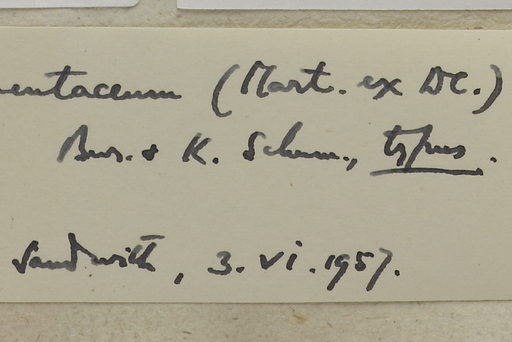 entaceum (Mart. ex DC.)
Bur. & K. Schum., typus.
Sandwith, 3.vi.1957.